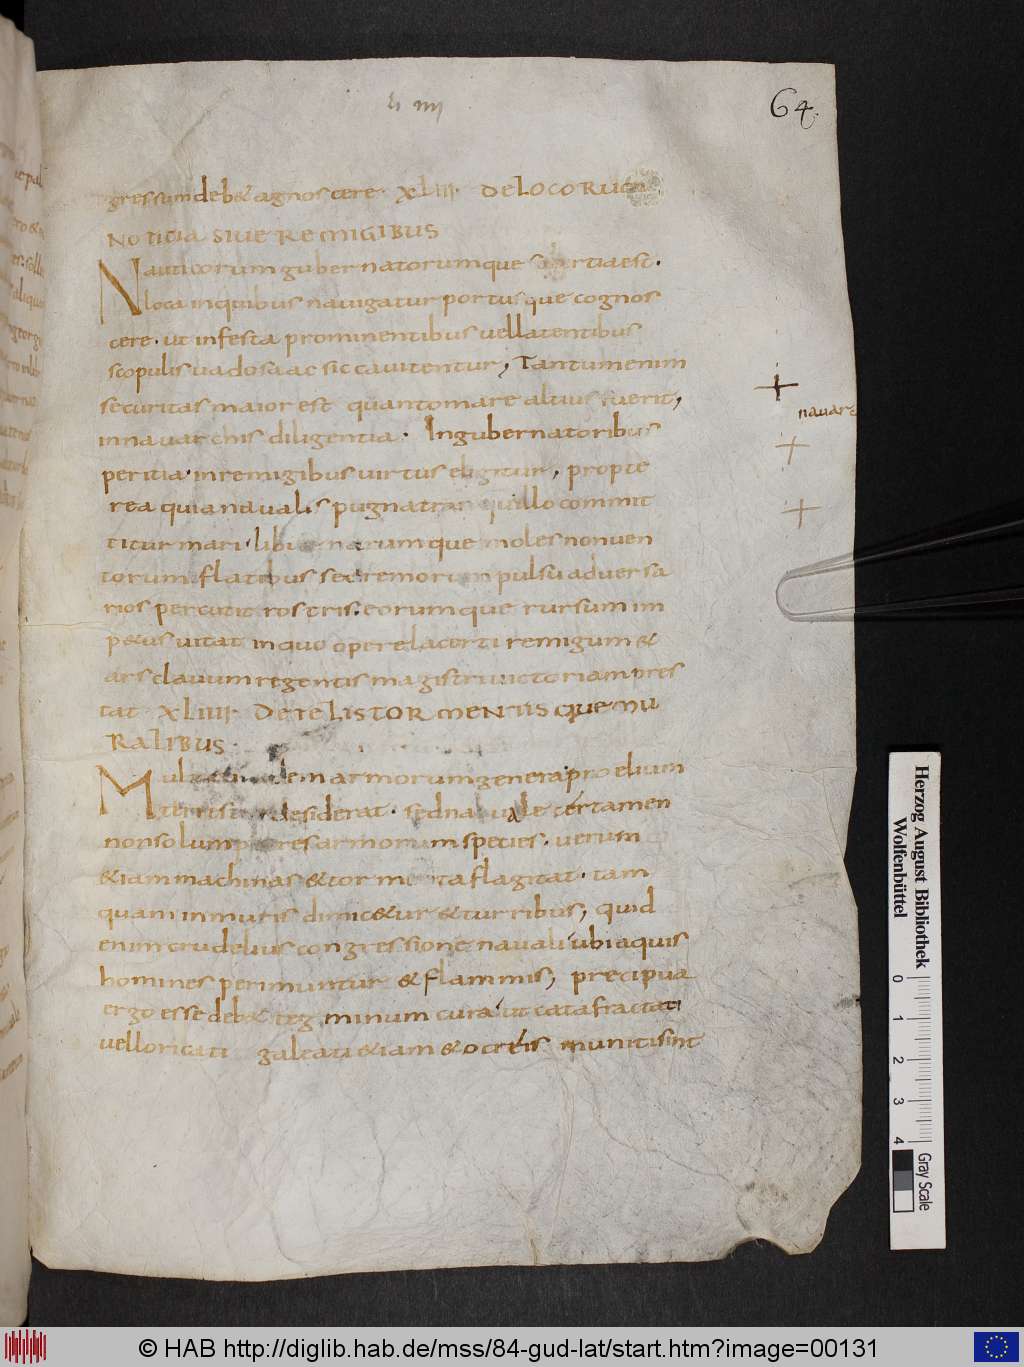 li iiii
64.
gressum deb& agnoscere. XLIII. DE LOCORUM
NOTITIA SIUE REMIGIBUS
Nauticorum gubernatorumque est.
loca in quibus nauigatur portusque cognos
cere. ut infesta prominentibus uel latentibus
scopulis uadosa ac sicca uitentur, Tantum enim
securitas maior est quanto mare altius fuerit,
in nauarchis diligentia. In gubernatoribus
peritia. in remigibus uirtus eligitur, propte
rea quia naualis pugna tranquillo commit
titur mari. liburnarumque moles non uen
torum flatibus sed remorum pulsu aduersa
rios percutit rostris. eorumque rursum im
p&us uitat in quo opere lacerti remigum &
ars clauum regentis magistri uictoriam pres
tat XLIIII. DE TELIS TORMENTISque MU
RALIBUS
Multa quidem armorum genera proelium
terrestre desiderat. sed nauale certamen
non solum plures armorum species. uerum
&iam machinas & tormenta flagitat. tam
quam in muris dimic&ur & turribus, quid
enim crudelius congressione nauali ubi aquis
homines perimuntur & flammis, precipua
ergo esse deb& tegminum cura ut catafractati
uel loricati galeati &iam & ocreis muniti sint
nauare
Herzog August Bibliothek
Wolfenbüttel
0 1 2 3 4
Gray Scale
© HAB http://diglib.hab.de/mss/84-gud-lat/start.htm?image=00131